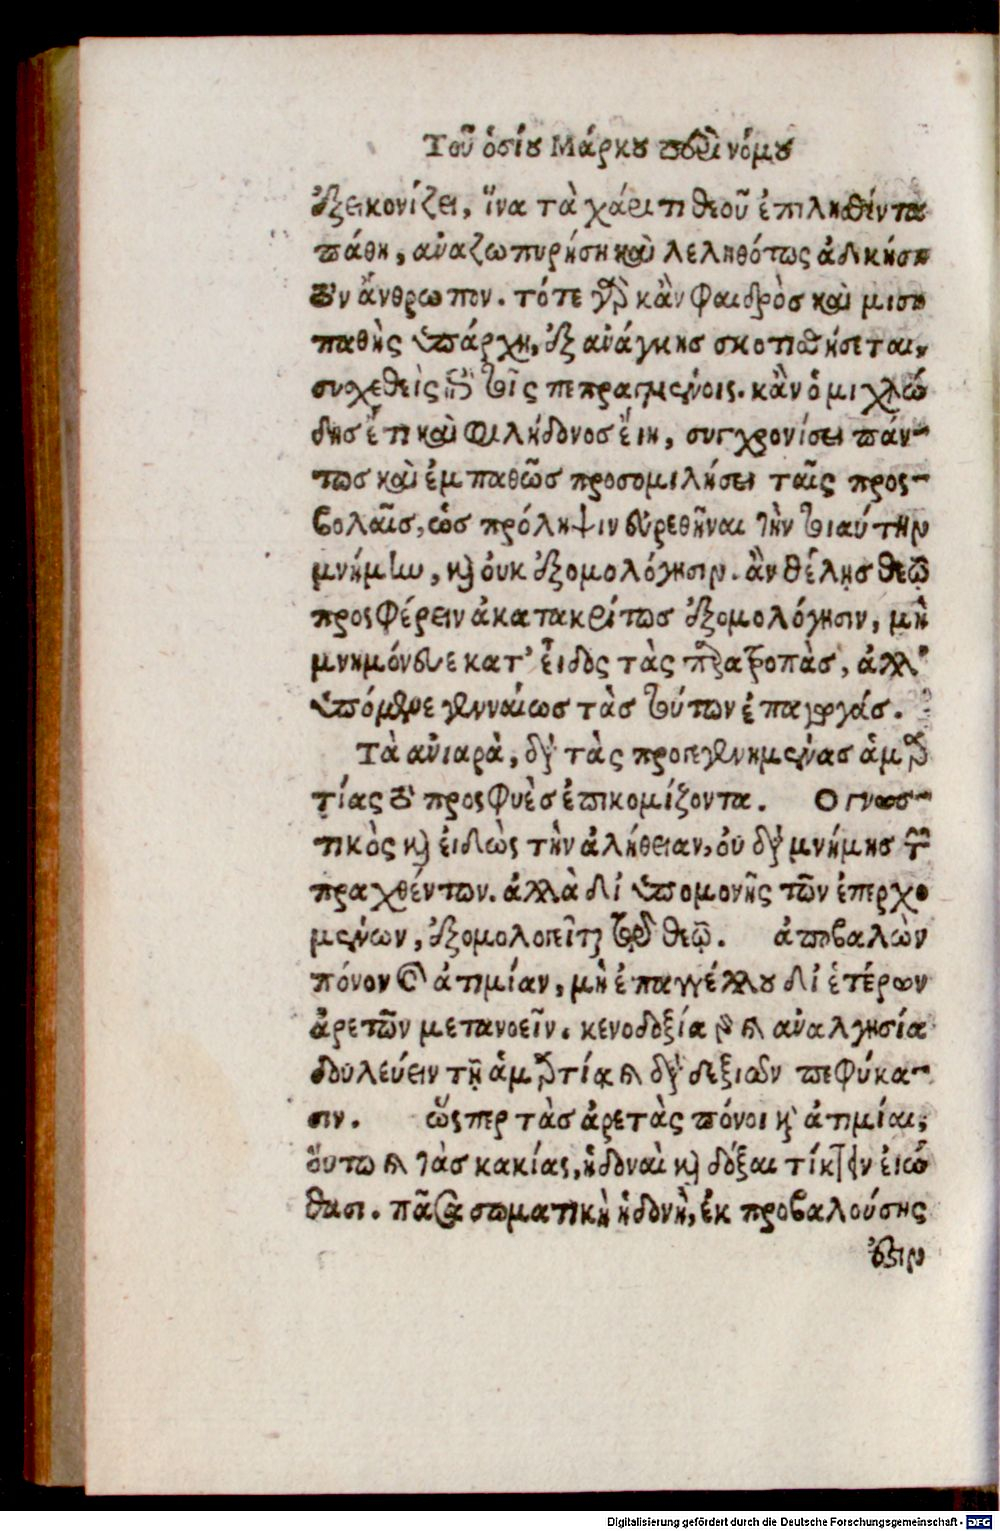 Τοῦ ὁσίου Μάρκου περὶ νόμου
ἐξεικονίζει, ἵνα τὰ χάριτι θεοῦ ἐπιλησθέντα
πάθη, ἀναζωπυρήση καὶ λεληθότως ἀδικήση
τὸν ἄνθρωπον. τότε γὰρ κἂν φαιδρὸς καὶ μισο
παθὴς ὑπάρχη, ἐξ ἀνάγκης σκοτισθήσεται,
συγχεθεὶς ἐπὶ τοῖς πεπραγμένοις. κἂν ὁμιχλώ
δης ἔτι καὶ φιλήδονος εἴη, συγχρονίσει πάν-
τως καὶ ἐμπαθῶς προσομιλήσει ταῖς προς-
βολαῖς, ὡς πρόληψιν εὑρεθῆναι τὴν τοιαύτην
μνήμην, καὶ οὐκ ἐξομολόγησιν. ἂν θέλης θεῷ
προςφέρειν ἀκατακρίτως ἐξομολόγησιν, μὴ
μνημόνευε κατ' εἶδος τὰς παρατροπὰς, ἀλλ'
ὑπόμενε γενναίως τὰς τούτων ἐπαγωγάς.
Τὰ ἀνιαρὰ, διὰ τὰς προγεγενημένας ἁμαρ
τίας τὸ προςφυὲς ἐπικομίζοντα. Ο γνωσ-
τικὸς καὶ εἰδὼς τὴν ἀλήθειαν, οὐ διὰ μνήμης τῶν
πραχθέντων. ἀλλὰ δι' ὑπομονῆς τῶν ἐπερχο
μένων, ἐξομολογεῖται τῷ θεῷ. ἀποβαλὼν
πόνον καὶ ἀτιμίαν, μὴ ἐπαγγέλλου δι' ἑτέρων
ἀρετῶν μετανοεῖν. κενοδοξία γὰρ καὶ ἀναλγησία
δουλεύειν τῇ ἁμαρτίᾳ καὶ διὰ δεξιῶν πεφύκα-
σιν. ὥςπερ τὰς ἀρετὰς πόνοι καὶ ἀτιμίαι,
οὕτω καὶ τὰς κακίας, ἡδοναὶ καὶ δόξαι τίκτειν εἰώ
θασι. πᾶσα σωματικὴ ἡδονὴ, ἐκ προβαλούσης
ἐςιν
Digitalisierung gefördert durch die Deutsche Forschungsgemeinschaft - DFG